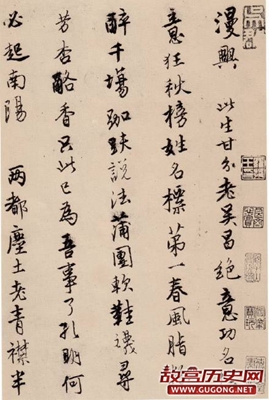 漫興 此生甘分老吳昌絕意功名
意狂秋榜姓名標第一春風脂
醉千場跏趺說法蒲團軟鞋襪尋
芳杏酪香只此已為吾事了孔明何
必起南陽 兩都塵土老青襟半
故宫历史网
www.gugong.net